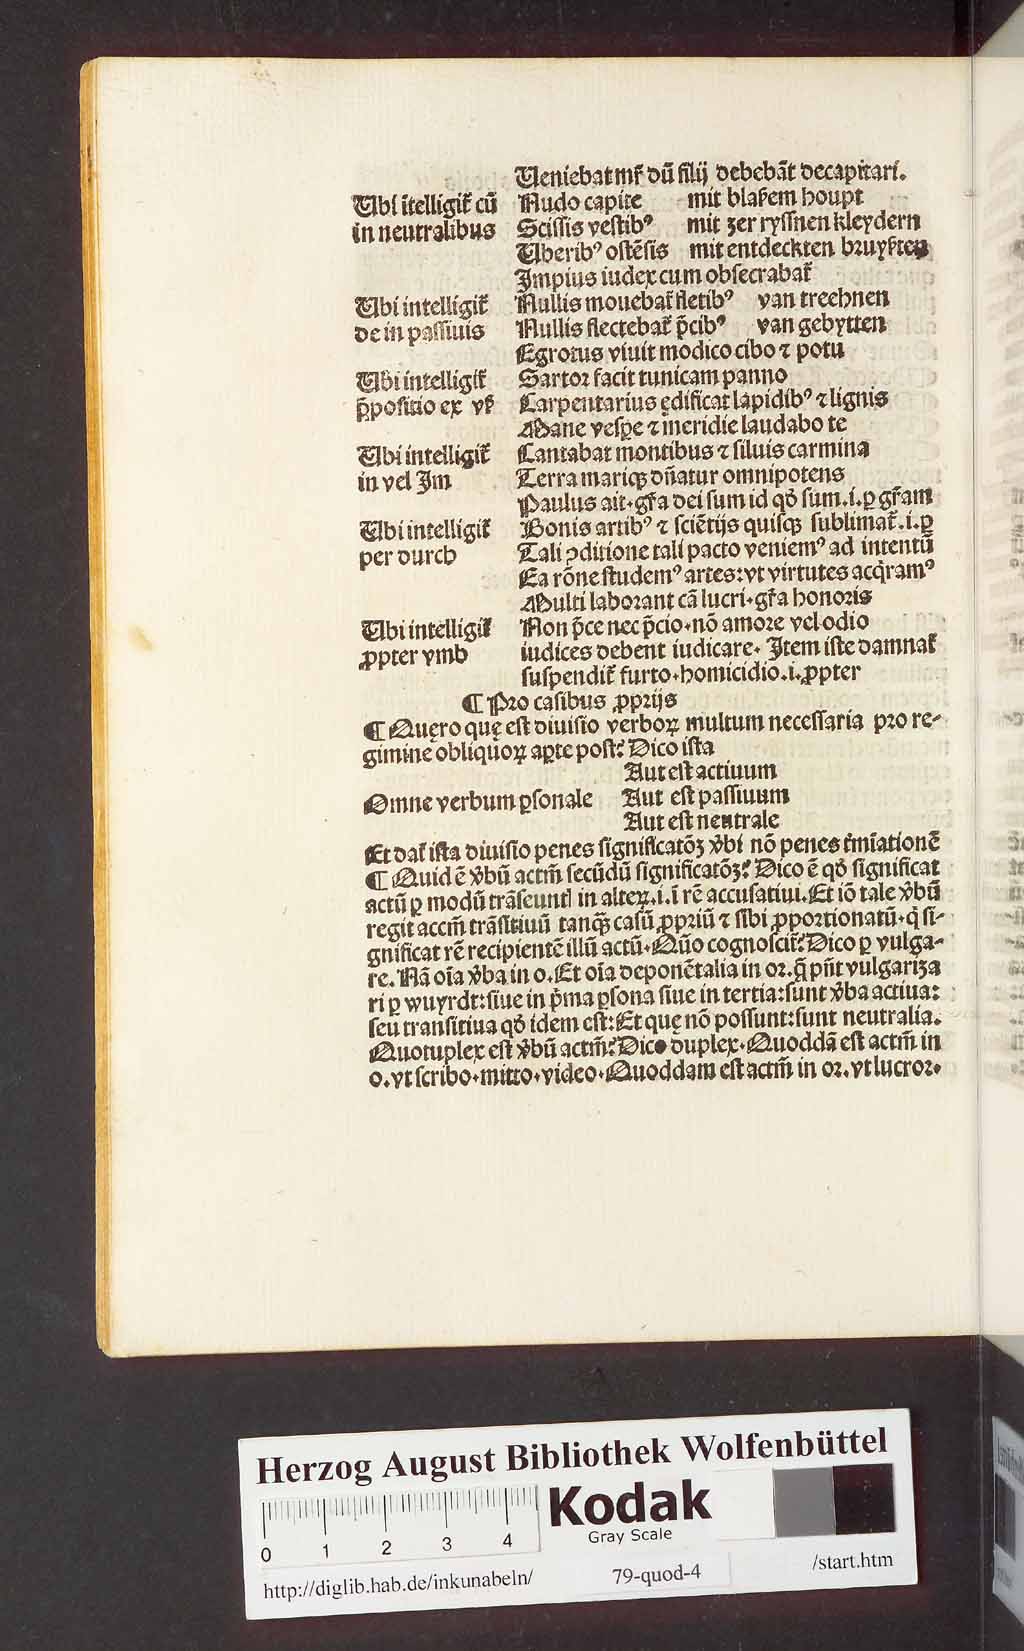 Ueniebat mr̃ dũ filij debebãt decapitari.
Ubi ĩtelligit̃ cũ Nudo capite mit blaßem houpt
in neutralibus Scissis vestibꝰ mit zer ryssnen kleydern
Uberibꝰ ostẽsis mit entdeckten bruysten
Impius iudex cum obsecrabat̃
Ubi intelligit̃ Nullis mouebat̃ fletibꝰ van treehnen
de in passiuis Nullis flectebat̃ p̃cibꝰ van gebytten
Egrotus viuit modico cibo ⁊ potu
Ubi intelligit̃ Sartor facit tunicam panno
p̃positio ex Carpentarius ędificat lapidibꝰ ⁊ lignis
Mane vesꝑe ⁊ meridie laudabo te
Ubi intelligit̃ Cantabat montibus ⁊ siluis carmina
in vel Im Terra mariqꝫ dñatur omnipotens
Paulus ait·gr̃a dei sum id qď sum.i.ꝑ gr̃am
Ubi intelligit̃ Bonis artibꝰ ⁊ sciẽtijs quisqꝫ sublimat̃.i.ꝑ
per durch Tali ꝯditione tali pacto veniemꝰ ad intentũ
Ea rõne studemꝰ artes:vt virtutes acq̃ramꝰ
Multi laborant cã lucri·gr̃a honoris
Ubi intelligit̃ Non p̃ce nec p̃cio·nõ amore vel odio
ꝓpter vmb iudices debent iudicare· Item iste damnat̃
suspendit̃ furto·homicidio.i.ꝓpter
¶ Pro casibus ꝓprijs
¶ Quęro quę est diuisio verboꝝ multum necessaria pro re-
gimine obliquoꝝ aꝑte post? Dico ista
Aut est actiuum
Omne verbum ꝑsonale Aut est passiuum
Aut est neutrale
Et dat̃ ista diuisio penes significatõꝫ v̊bi nõ penes t̃miatio̅ẽ
¶ Quid ẽ v̊bũ actm̃ secũdũ significatõꝫ? Dico ẽ qď significat
actũ ꝑ modũ trãseuntꝭ in alteꝝ.i.ĩ rẽ accusatiui. Et iõ tale v̊bũ
regit accm̃ trãsitiuũ tanqꝫ casũ ꝓpriũ ⁊ sibi ꝓportionatũ·q̇ si-
gnificat rẽ recipientẽ illũ actũ·Qũo cognoscit̃? Dico ꝑ vulga-
re. Nã oĩa v̊ba in o. Et oĩa deponẽtalia in or.q̃ pñt vulgariza
ri ꝑ wuyrdt:siue in p̃ma ꝑsona siue in tertia:sunt v̊ba actiua:
seu transitiua qď idem est: Et quę nõ possunt:sunt neutralia.
Quotuplex est v̊bũ actm̃? Dico duplex·Quoddã est actm̃ in
o.vt scribo·mitto·video·Quoddam est actm̃ in or.vt lucror·
Herzog August Bibliothek Wolfenbüttel
0 1 2 3 4
Kodak
Gray Scale
http://diglib.hab.de/inkunabeln/ 79-quod-4 /start.htm